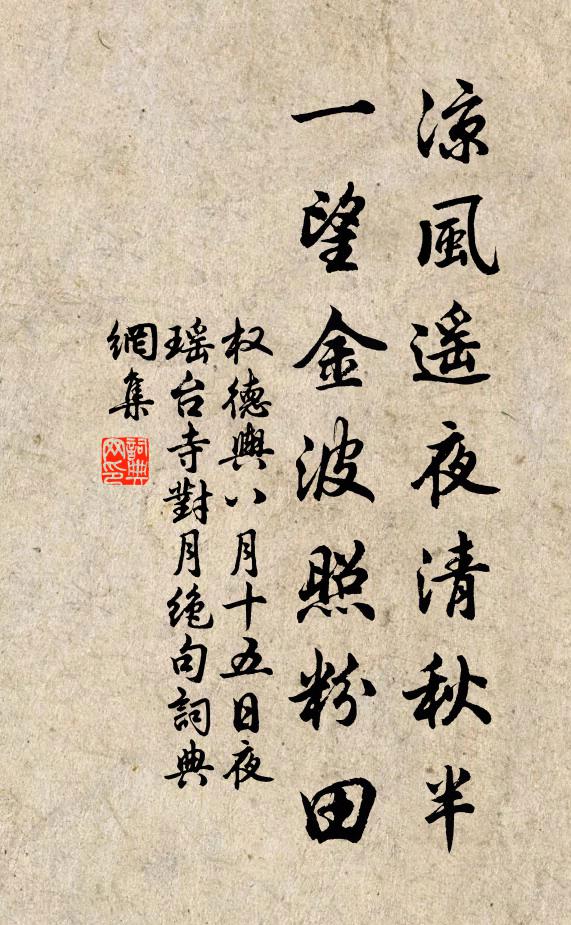 凉風遥夜清秋半
一望金波照粉田
权德輿八月十五日夜
瑶台寺對月绝句詞典
網集
詞典
网印